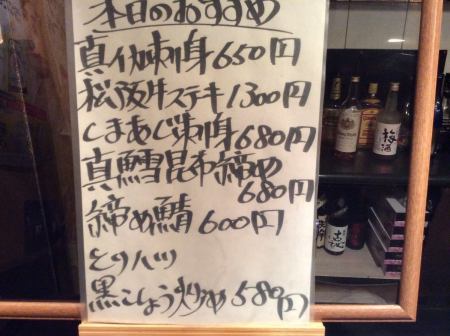 本日のおすすめ
真イカ刺身 650円
松阪牛ステキ 1300円
しまあじ刺身 680円
真鱈昆布締め
680円
締め鯖 600円
とりハツ
黒こしょう炒め 580円
梅酒